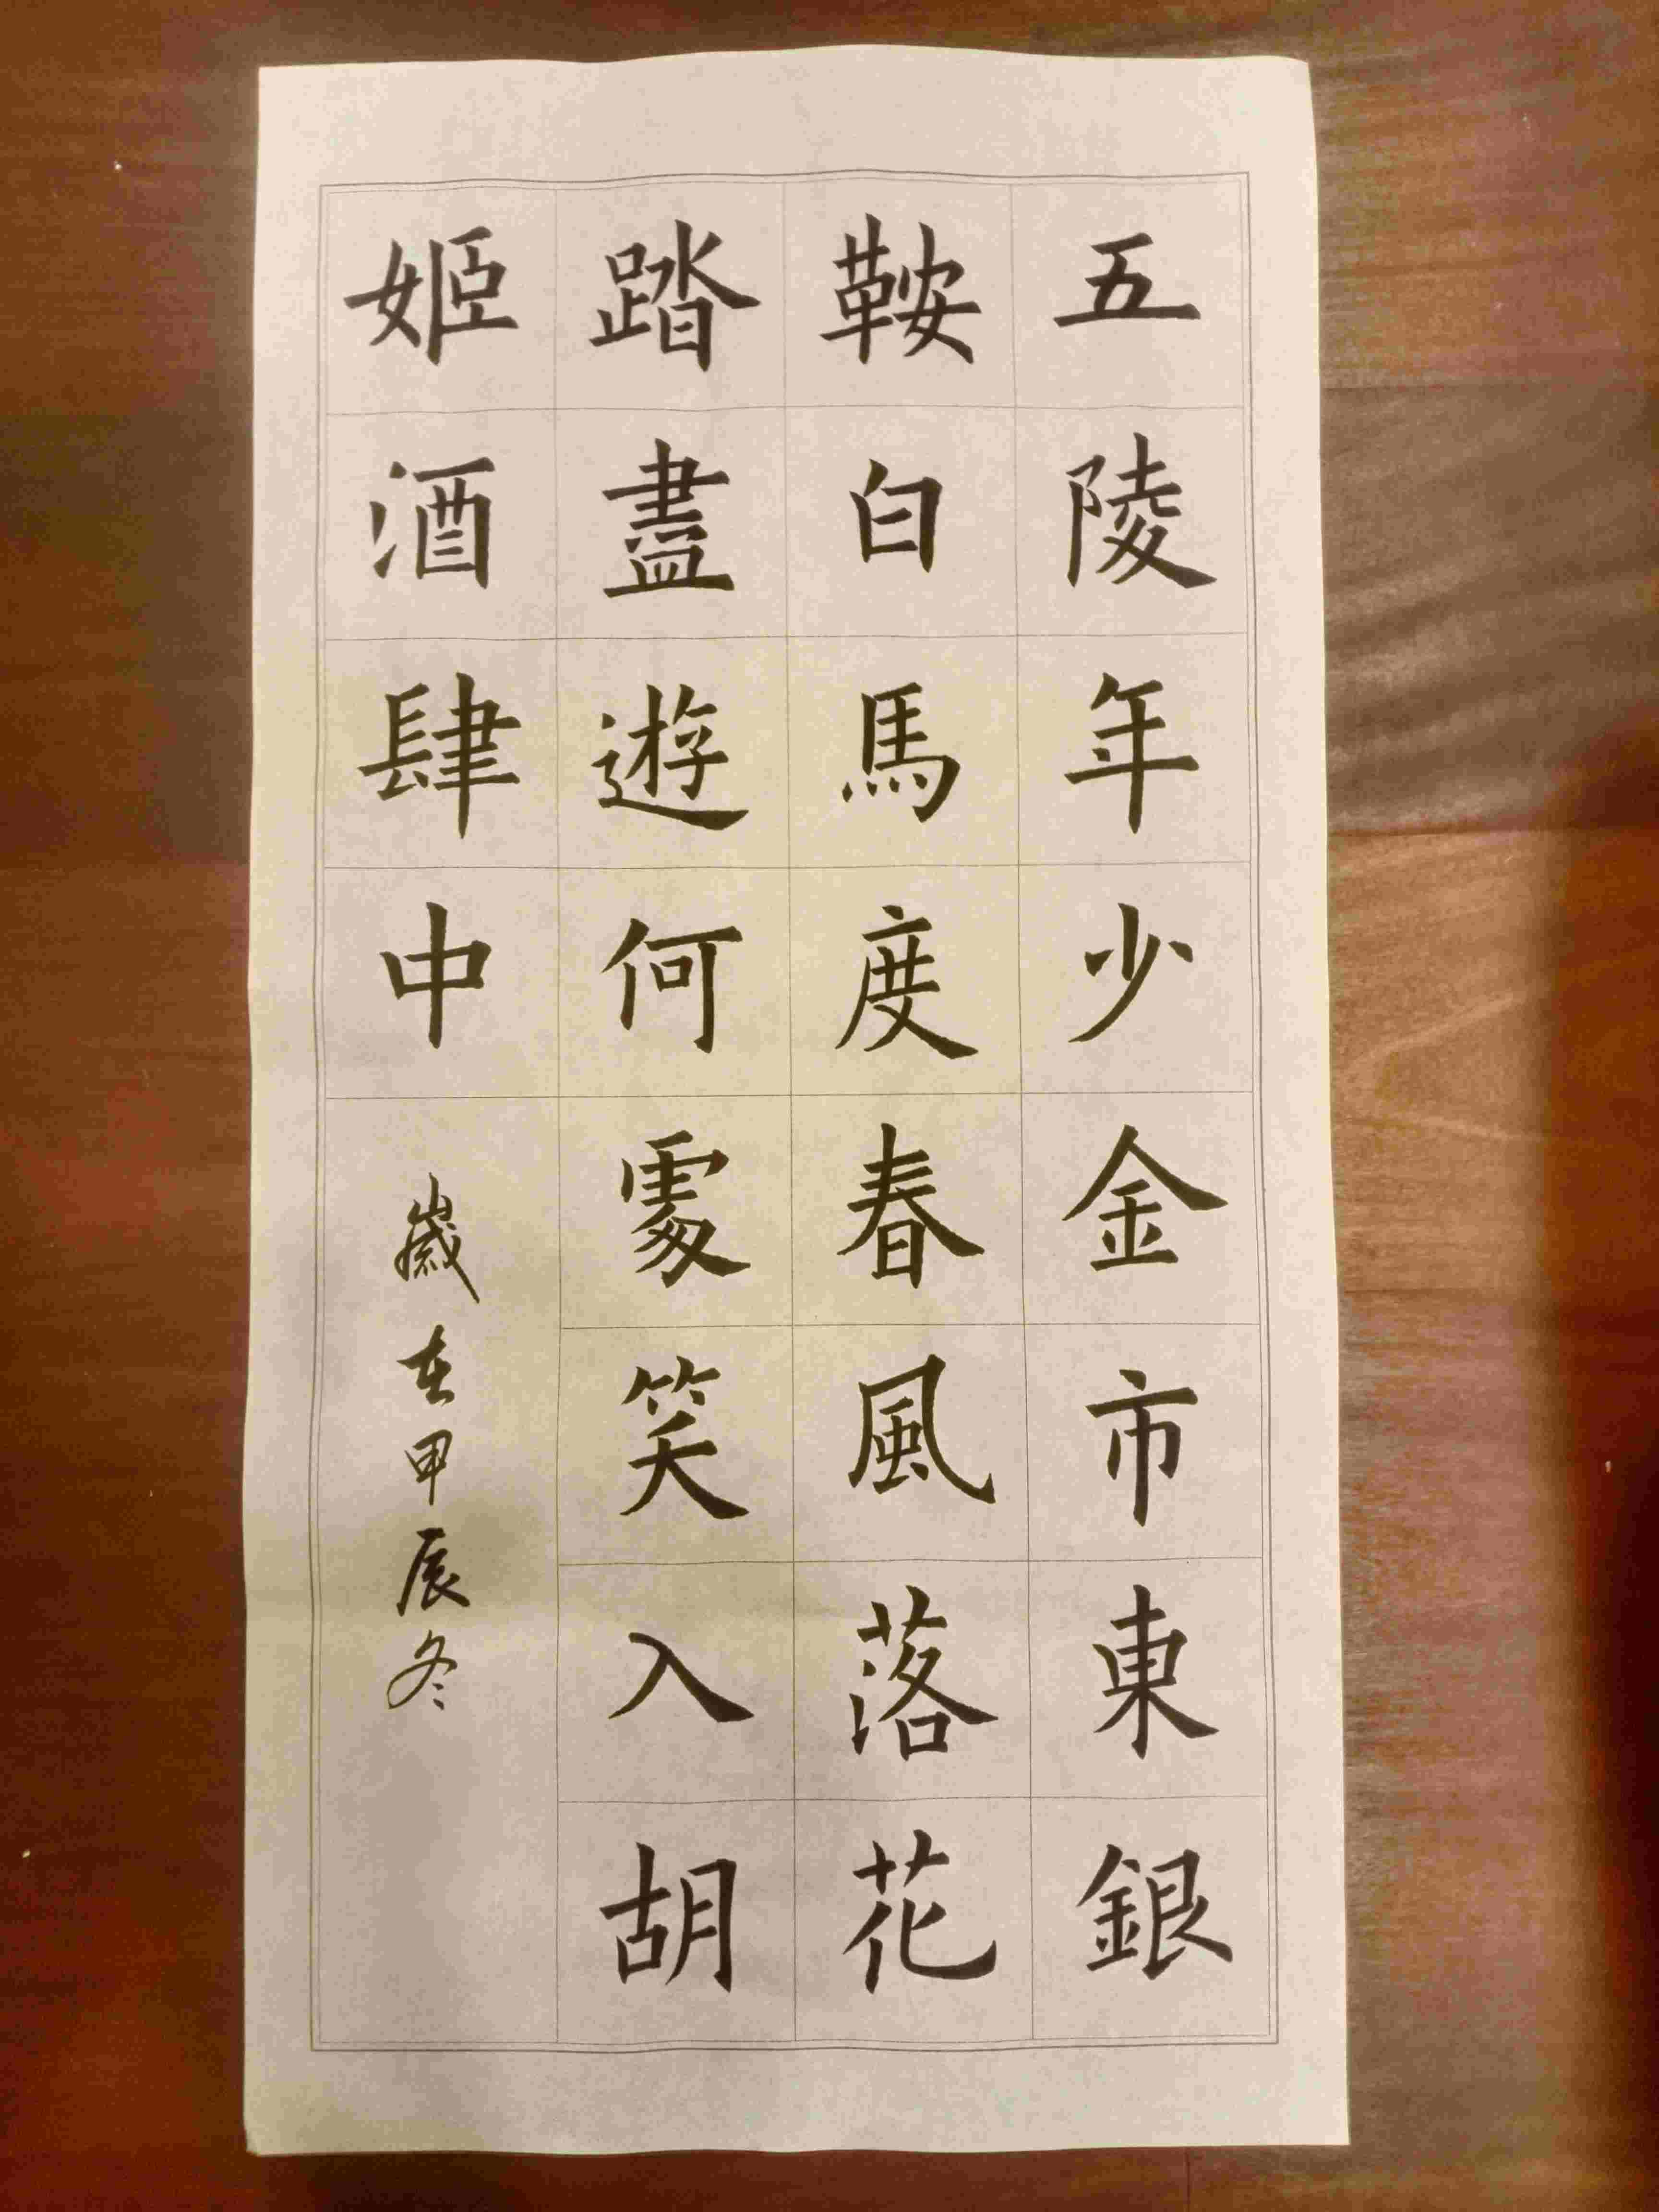 五陵年少金市東銀
鞍白馬度春風落花
踏盡遊何處笑入胡
姬酒肆中
歲在甲辰冬